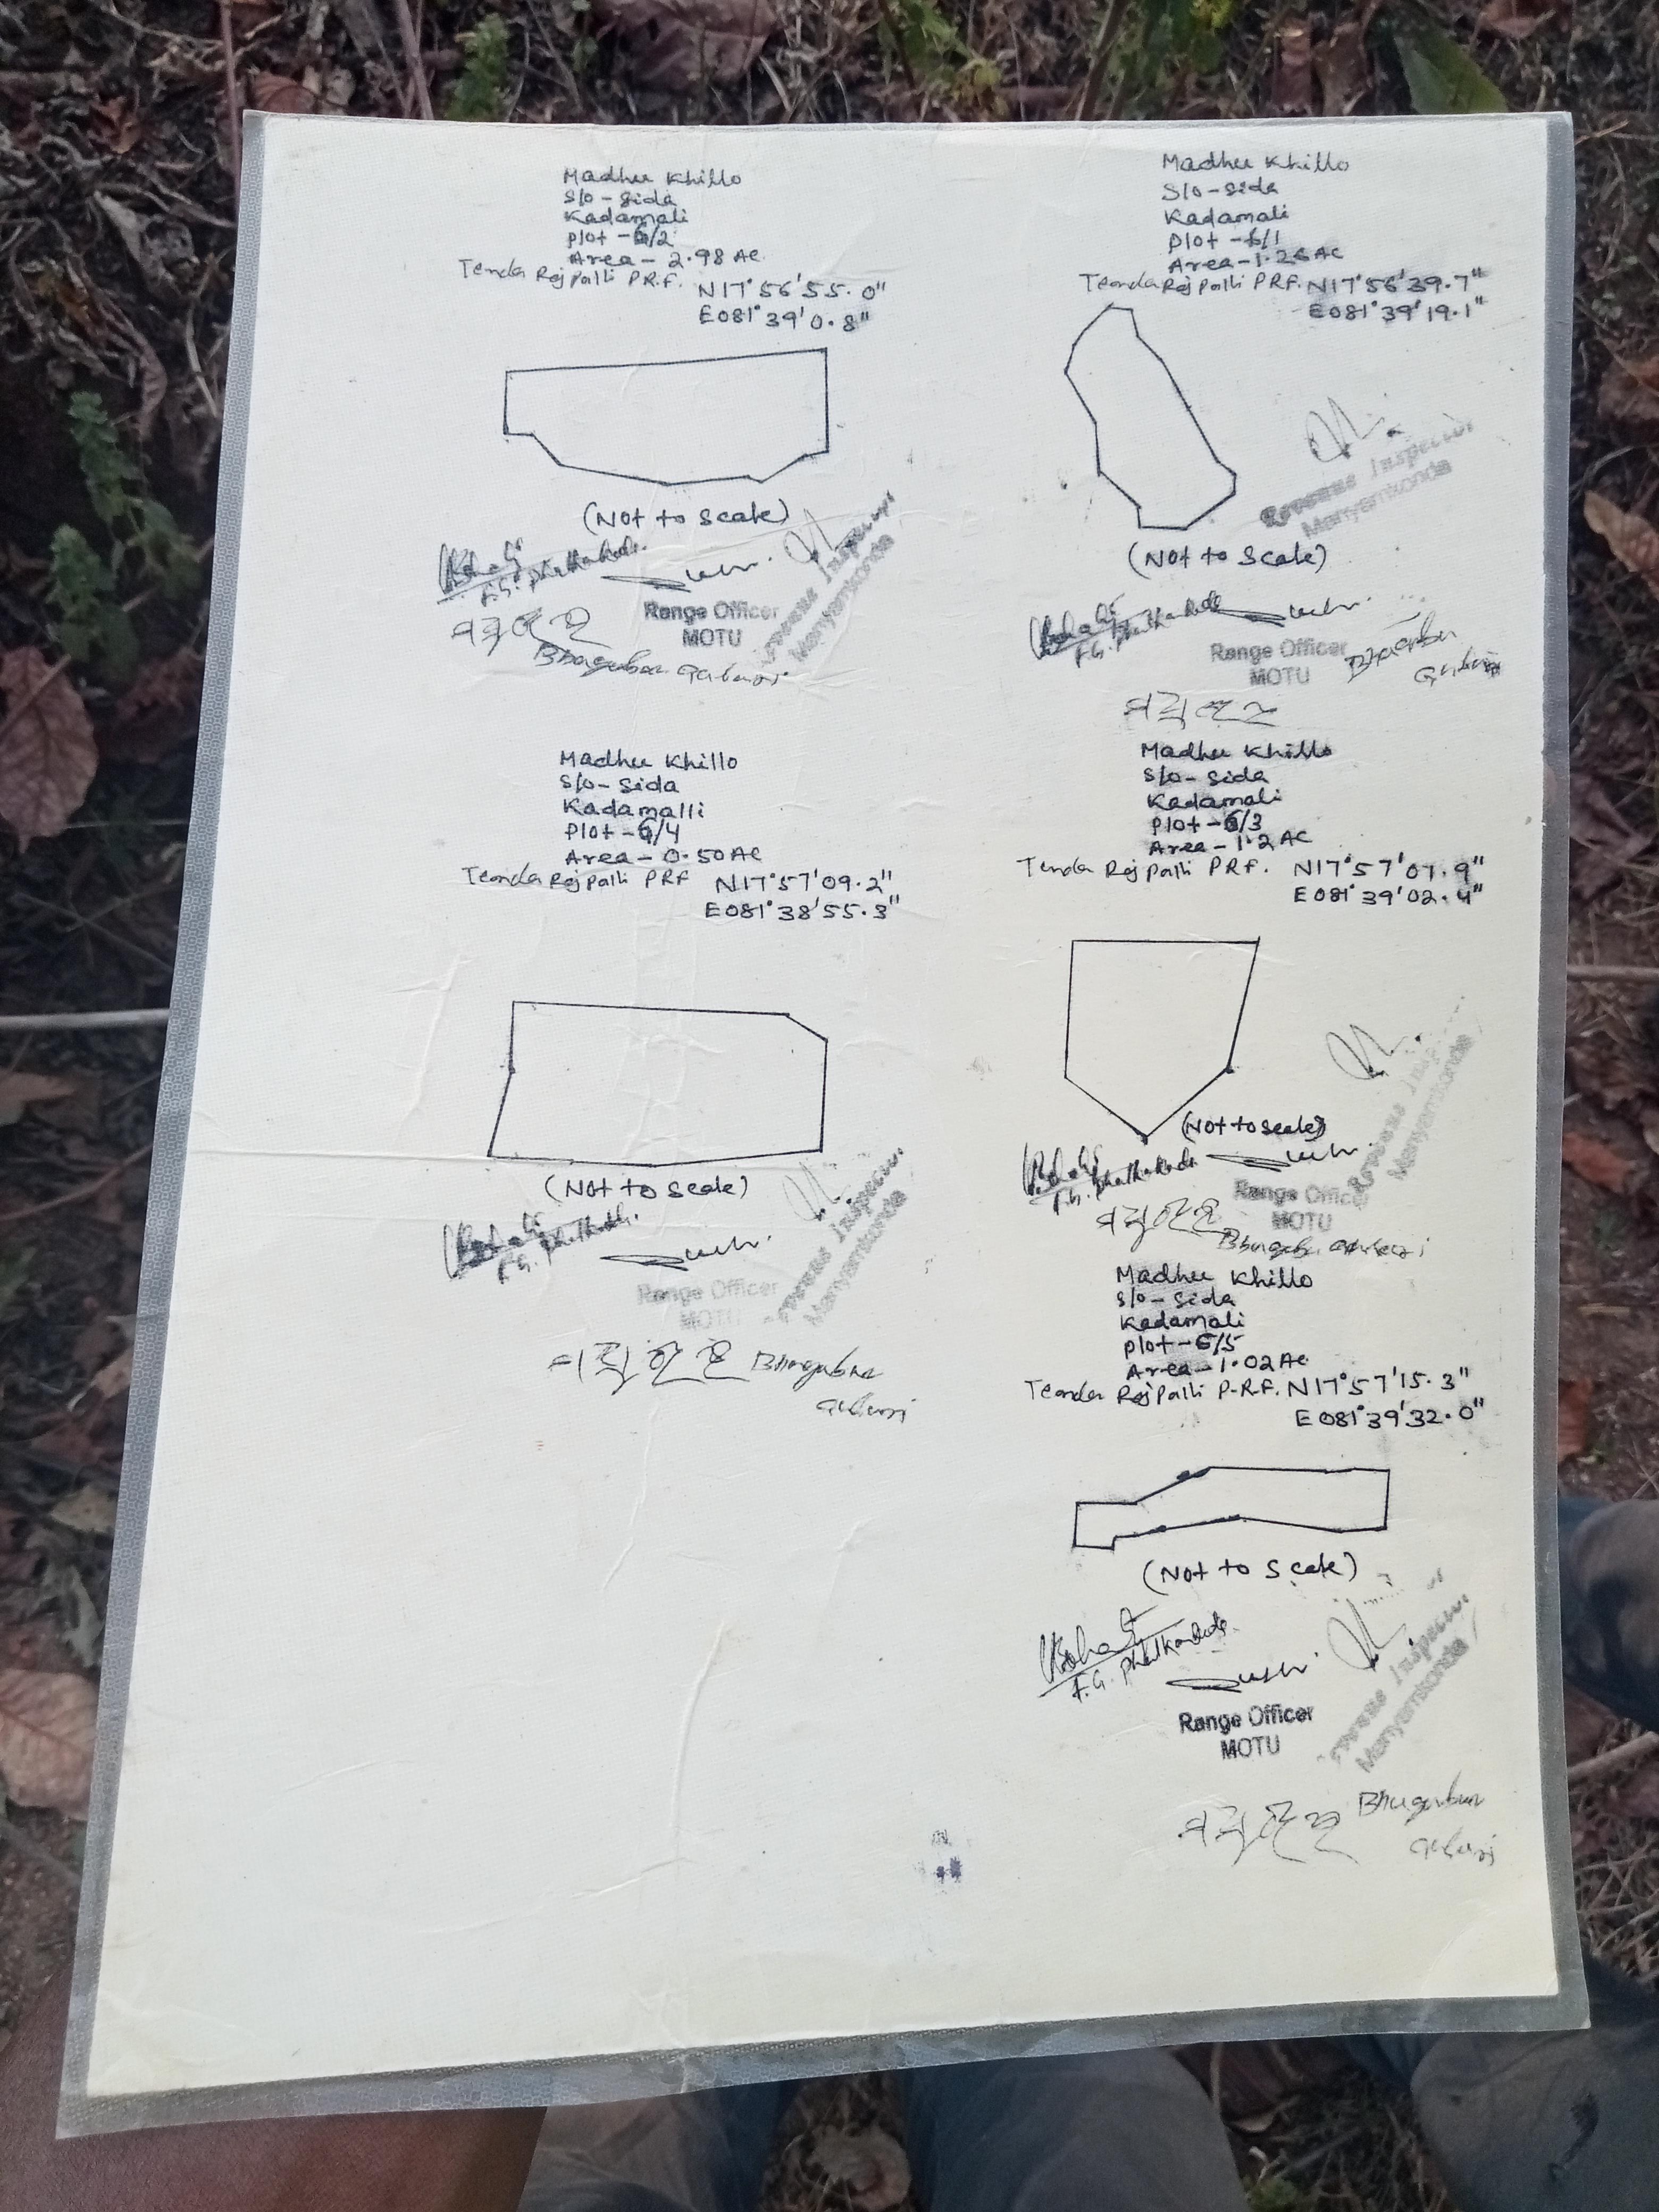 Madhu Khillo
S/o - Sida
Kadamali
Plot - 6/2
Area - 2.98 AC
Tenda Rejpalli P.R.F. N17°56'55.0"
E081°39'0.8"
(Not to Scale)
F.G.
Range Officer
MOTU
Revenue Inspector
Manyamkonda
Madhu Khillo
S/o - Sida
Kadamali
Plot - 6/1
Area - 1.26 AC
Teonda Rejpalli PRF. N17°56'39.7"
E081°39'19.1"
Revenue Inspector
Manyamkonda
(Not to Scale)
F.G.
Range Officer
MOTU
Madhu Khillo
S/o - Sida
Kadamalli
Plot - 6/4
Area - 0.50 AC
Teonda Rejpalli PRF N17°57'09.2"
E081°38'55.3"
(Not to Scale)
F.G.
Range Officer
MOTU
Revenue Inspector
Manyamkonda
Madhu Khillo
S/o - Sida
Kadamali
Plot - 6/3
Area - 1.2 AC
Tenda Rejpalli P.R.F. N17°57'07.9"
E081°39'02.4"
(Not to Scale)
F.G.
Range Officer
MOTU
Revenue Inspector
Manyamkonda
Madhu Khillo
S/o - Sida
Kadamali
Plot - 6/5
Area - 1.02 AC
Teonda Rejpalli P.R.F. N17°57'15.3"
E081°39'32.0"
(Not to Scale)
F.G.
Range Officer
MOTU
Revenue Inspector
Manyamkonda